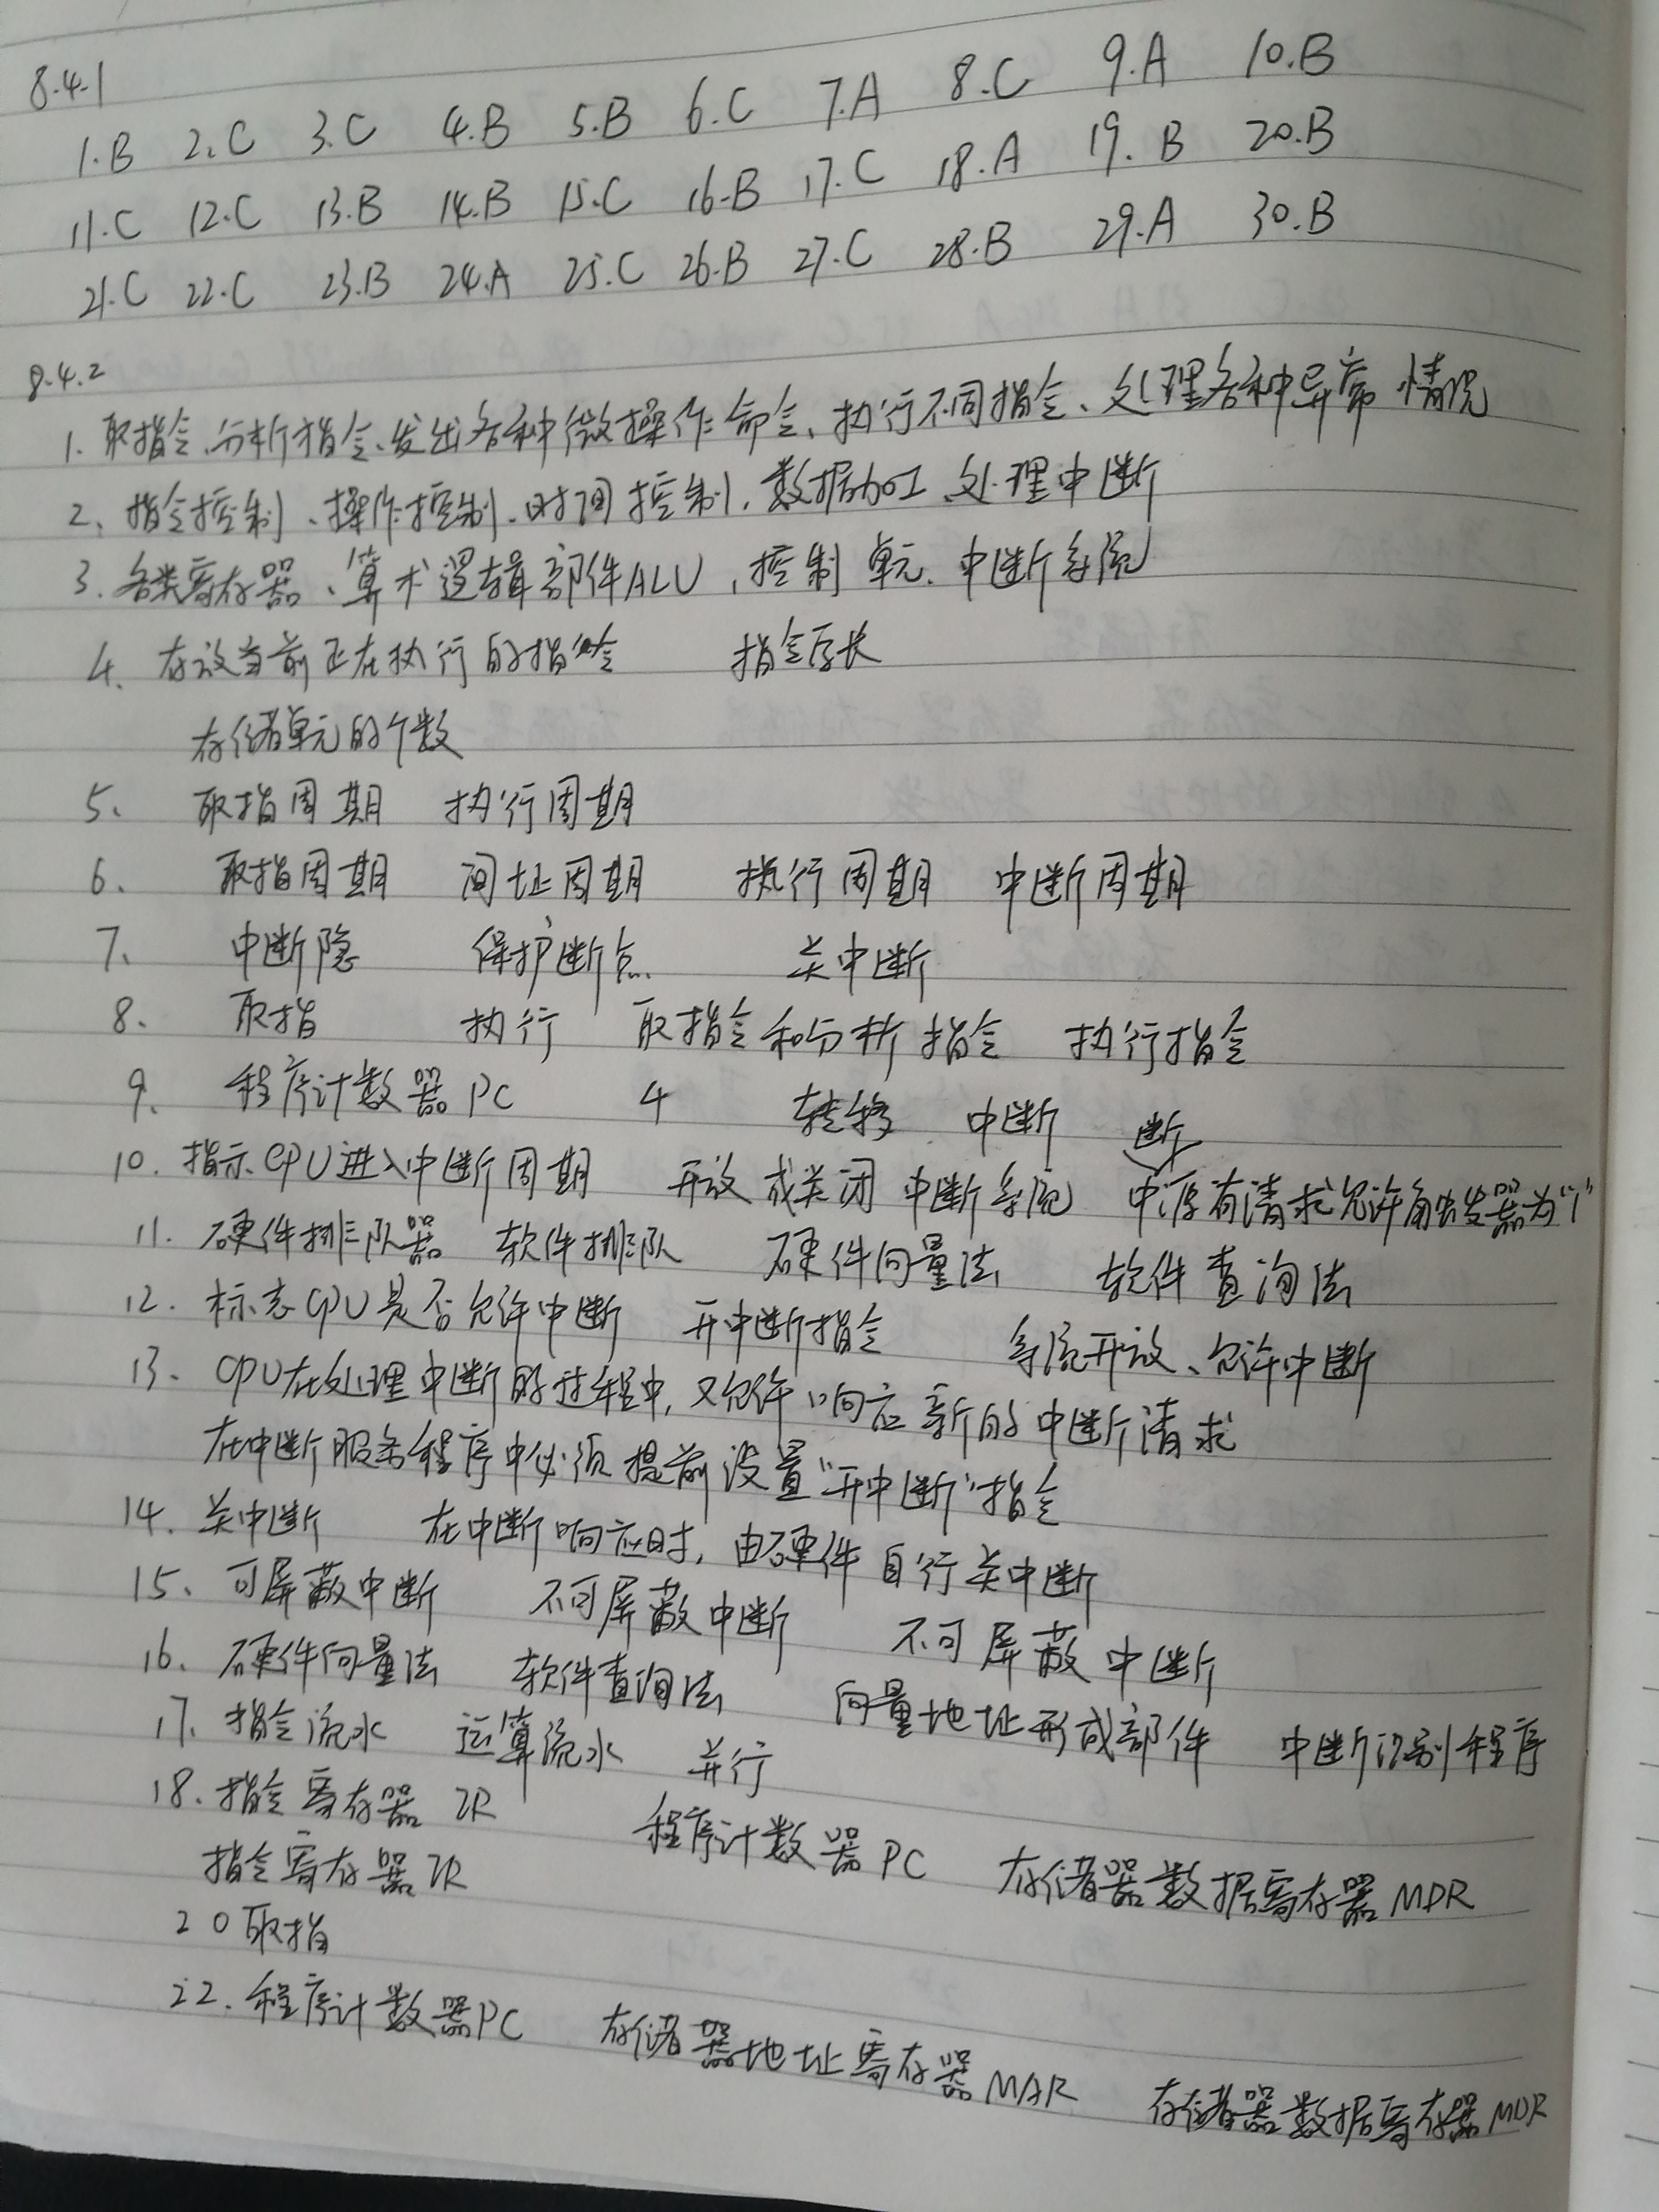 8.4.1
1.B 2.C 3.C 4.B 5.B 6.C 7.A 8.C 9.A 10.B
11.C 12.C 13.B 14.B 15.C 16.B 17.C 18.A 19.B 20.B
21.C 22.C 23.B 24.A 25.C 26.B 27.C 28.B 29.A 30.B
8.4.2
1. 取指令、分析指令、发出各种微操作命令、执行不同指令、处理各种异常情况
2、指令控制、操作控制、时间控制、数据加工、处理中断
3. 各类寄存器、算术逻辑部件ALU,控制单元、中断系统
4. 存放当前正在执行的指令 指令字长
存储单元的个数
5、 取指周期 执行周期
6、 取指周期 间址周期 执行周期 中断周期
7、 中断隐 保护断点 关中断
8. 取指 执行 取指令和分析指令 执行指令
9. 程序计数器PC 4 转移 中断
10. 指示CPU进入中断周期 开放或关闭中断系统 中断源有请求允许触发器为"1"
11. 硬件排队器 软件排队 硬件向量法 软件查询法
12. 标志CPU是否允许中断 开中断指令 系统开放、允许中断
13、CPU在处理中断的过程中,又允许响应新的中断请求
在中断服务程序中必须提前设置"开中断"指令
14. 关中断 在中断响应时,由硬件自行关中断
15、可屏蔽中断 不可屏蔽中断 不可屏蔽中断
16、硬件向量法 软件查询法 向量地址形成部件 中断识别程序
17、指令流水 运算流水 并行
18. 指令寄存器 IR 程序计数器PC 存储器数据寄存器MDR
指令寄存器IR
20取指
22. 程序计数器PC 存储器地址寄存器MAR 存储器数据寄存器MDR